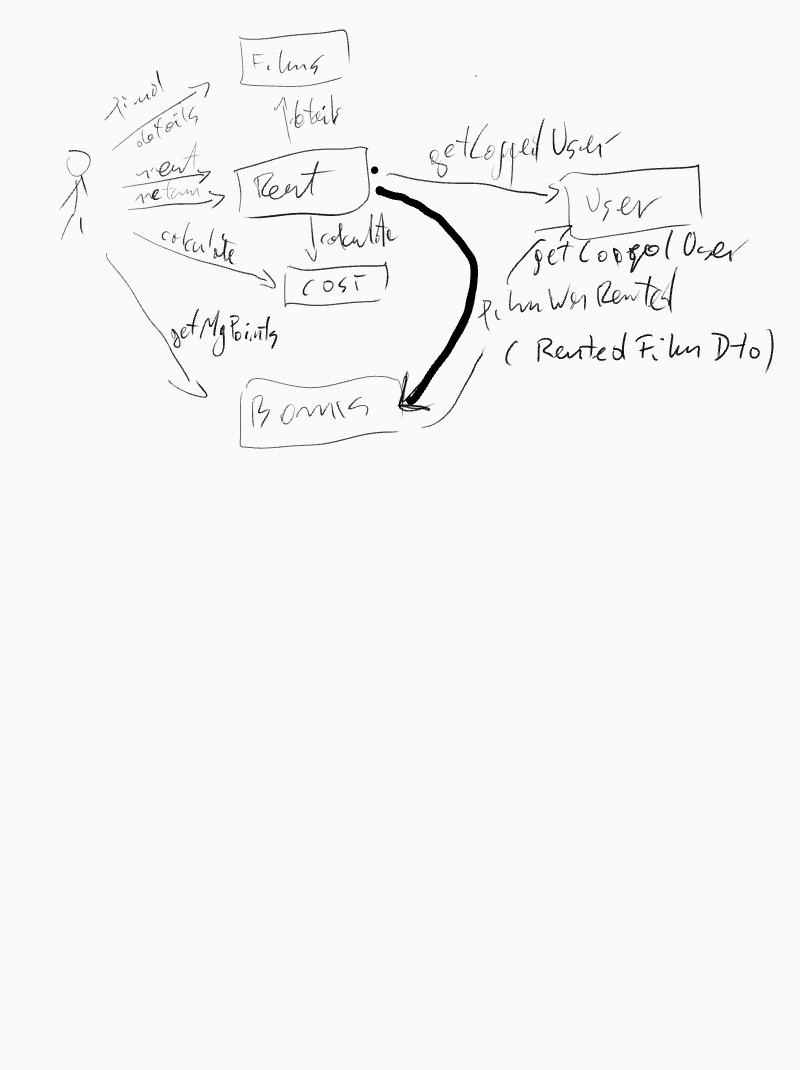 Films
find
details
details
rent
return
Rent
getLoggedUser
User
calculate
calculate
cost
getLoggedUser
filmWasRented
(RentedFilmDto)
getMyPoints
Bonus